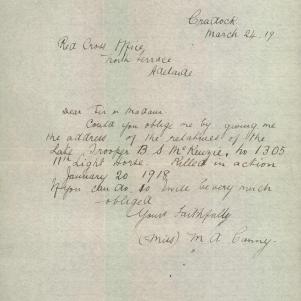 Cradock.
March 24. 19
Red Cross Office,
North Terrace
Adelaide
Dear Sir or Madam
Could you oblige me by giving me
the address of the relatives of the
late Trooper B S McKenzie, no 1305
11th Light Horse. Killed in action
January 20 1918
If you can do so I will be very much
obliged
Yours Faithfully
(Miss) M. A